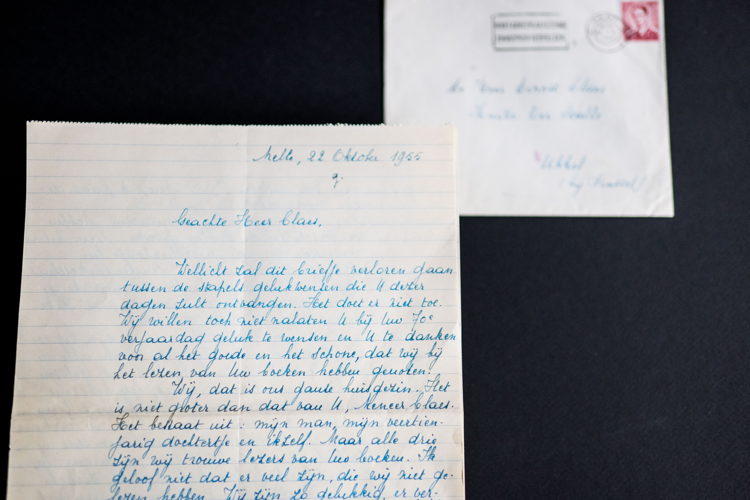 Melle, 22 Oktober 1955
Geachte Heer Claes,
Wellicht zal dit briefje verloren gaan
tussen de stapels gelukwensen die U dezer
dagen zult ontvangen. Het doet er niet toe.
Wij willen toch niet nalaten U bij Uw 70e
verjaardag geluk te wensen en U te danken
voor al het goede en het schone, dat wij bij
het lezen van Uw boeken hebben genoten.
Wij, dat is ons ganse huisgezin. Het
is niet groter dan dat van U, Meneer Claes.
Het bestaat uit: mijn man, mijn veertien-
jarig dochtertje en ikzelf. Maar alle drie
zijn wij trouwe lezers van Uw boeken. Ik
geloof niet dat er veel zijn, die wij niet ge-
lezen hebben. Wij zijn zo gelukkig, er ver-
Claes
Ukkel
(bij Brussel)